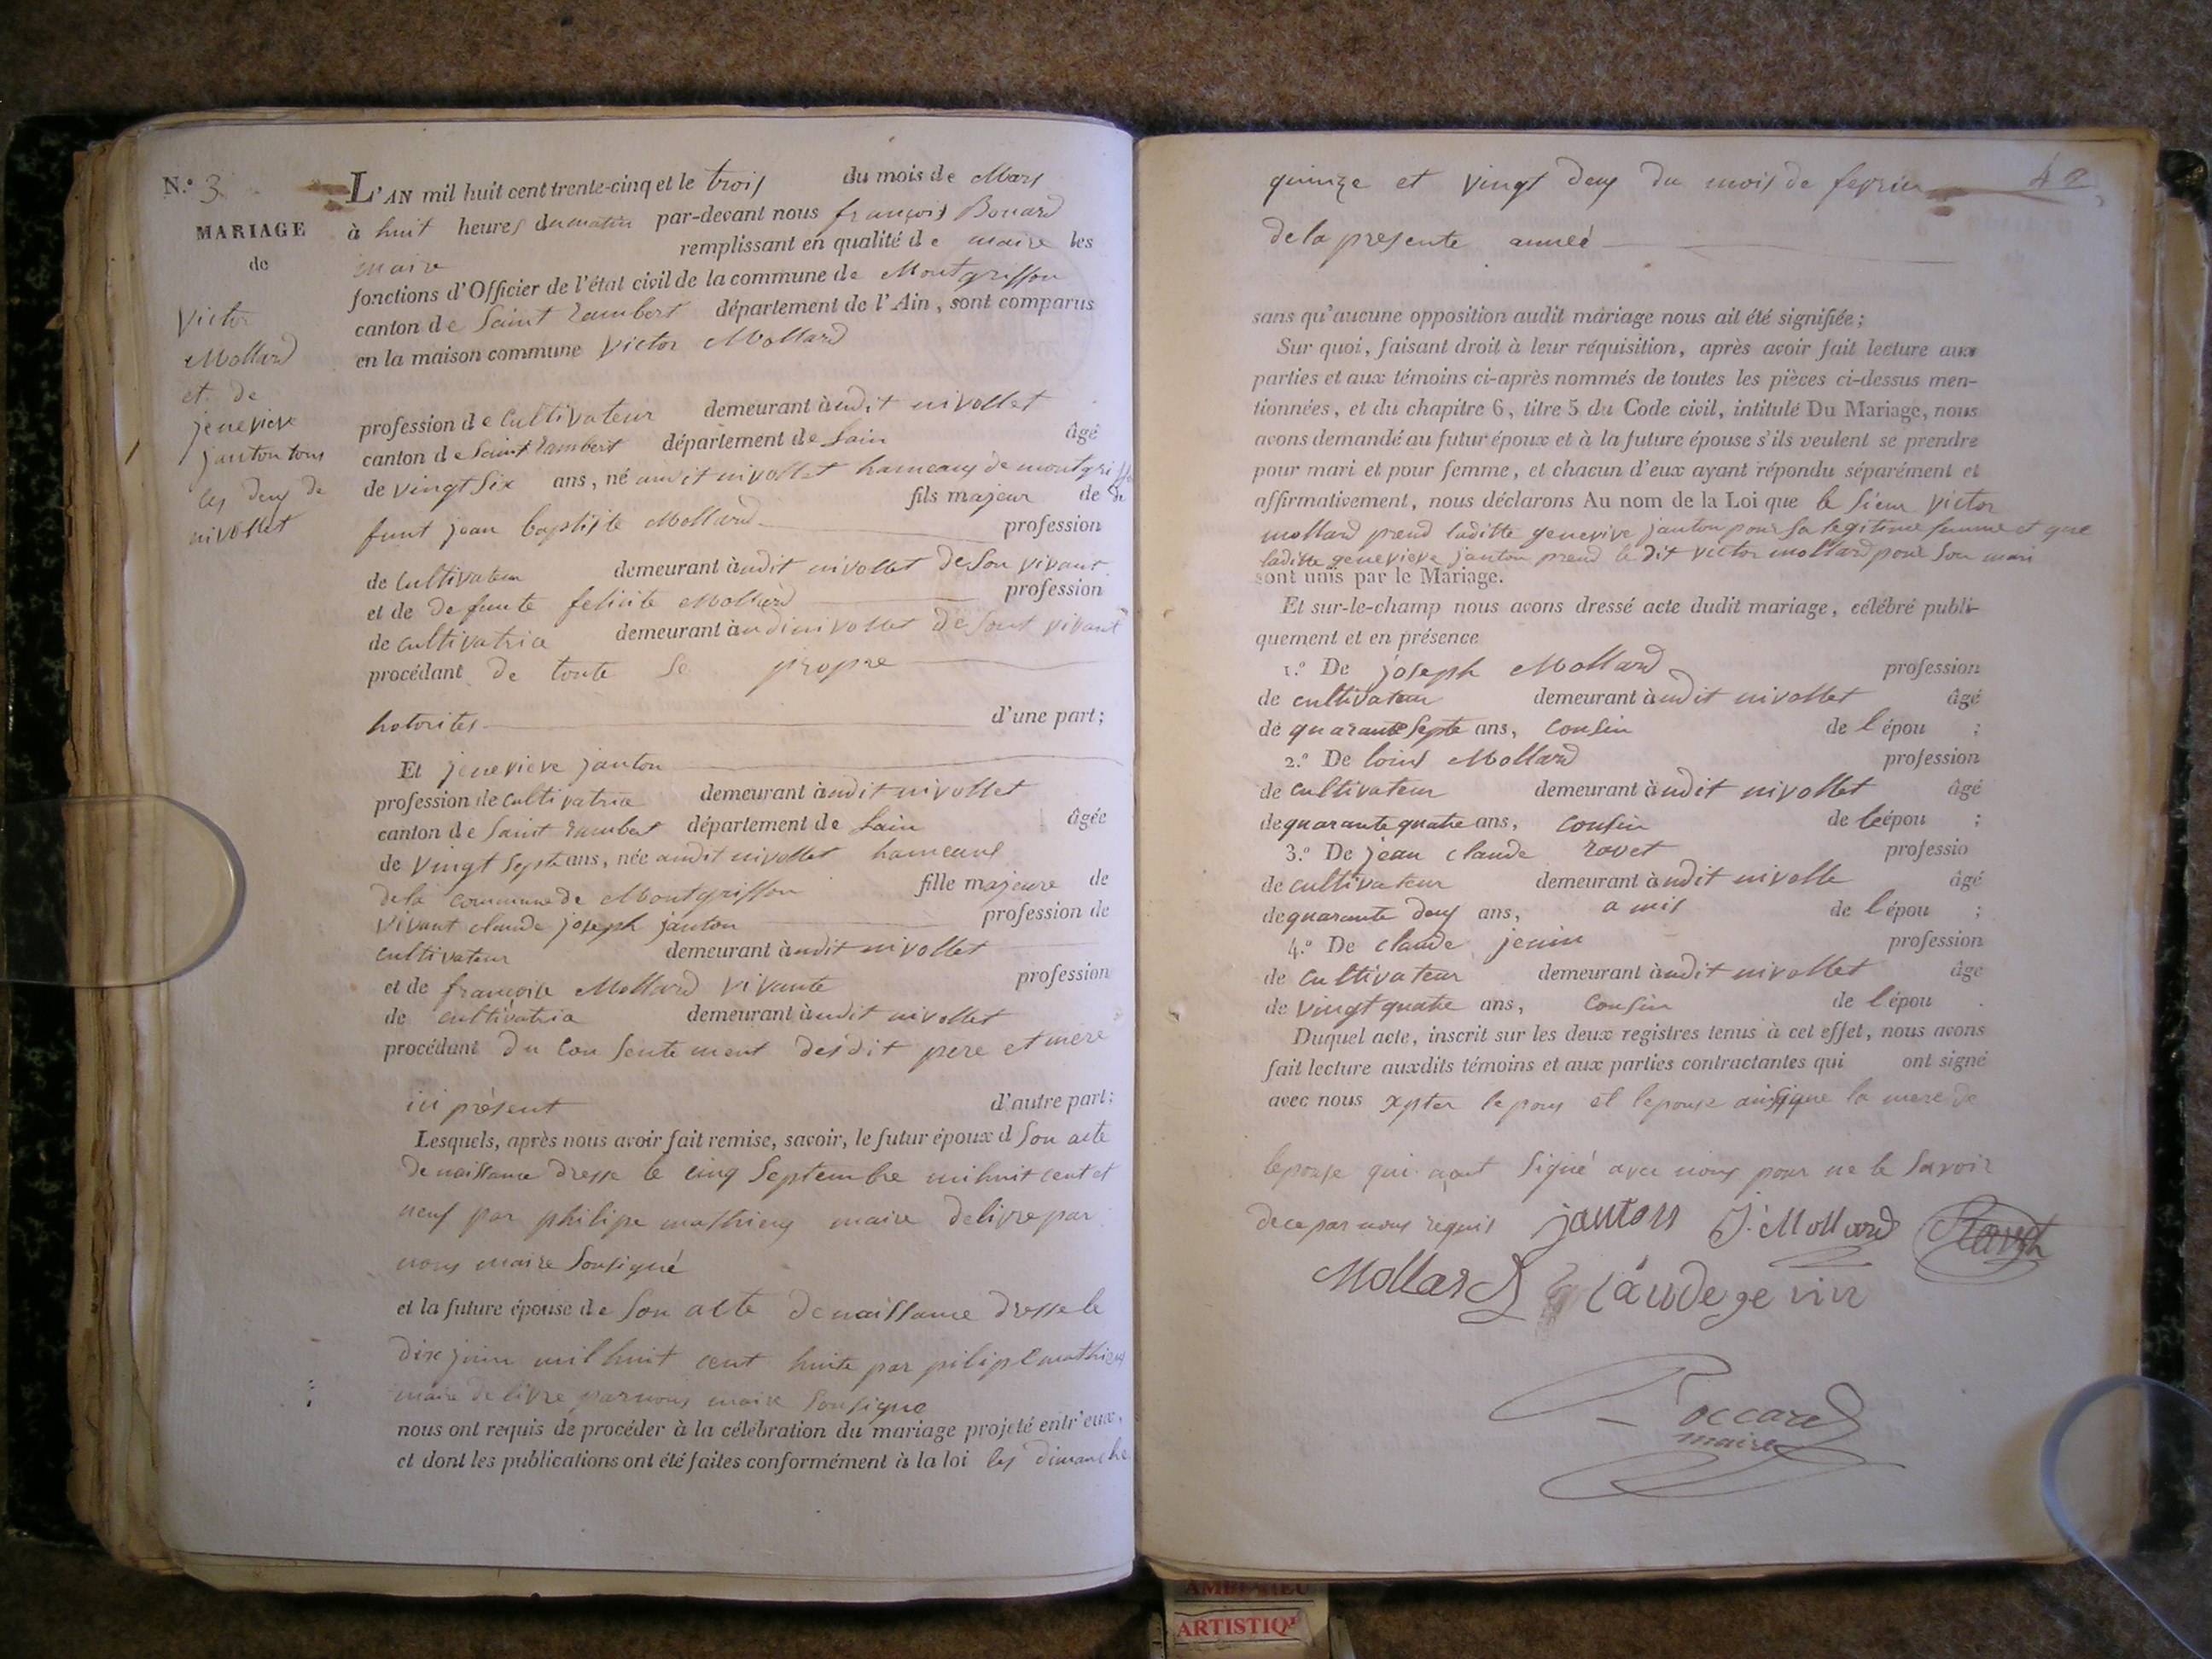 N.o 3
MARIAGE
de
Victor
Mollard
et de
jenevieve
janton tous
les deux de
nivollet
L'AN mil huit cent trente-cinq et le trois du mois de Mars
à huit heures du matin par-devant nous françois Bouard
maire remplissant en qualité de maire les
fonctions d'Officier de l'état civil de la commune de Montgriffon
canton de Saint rambert département de l'Ain, sont comparus
en la maison commune Victor Mollard
profession de Cultivateur demeurant àudit nivollet
canton de Saint rambert département de Lain âgé
de vingt Six ans, né audit nivollet hameaux de montgriffon
fils majeur de de
funt jean baptiste Mollard profession
de Cultivateur demeurant àudit nivollet de Son vivant
et de defunte felicite Mollard profession
de cultivatrice demeurant àudi nivollet de Sont vivant
procédant de toute Se propre
hotorites d'une part;
Et jenevieve janton
profession de Cultivatrice demeurant àudit nivollet
canton de Saint rambert département de Lain âgée
de vingt Septe ans, née audit nivollet hameaus
dela commune de Montgriffon fille majeure de
vivant claude joseph janton profession de
cultivateur demeurant àudit nivollet
et de françoise Mollard vivante profession
de cultivatrice demeurant àudit nivollet
procédant du Consentement desdit pere et mere
ici présent d'autre part;
Lesquels, après nous avoir fait remise, savoir, le futur époux d Son acte
de naissance dresse le cinq Septembre mil huit cent et
neuf par philipe mathieux maire delivre par
nous maire Sousigné
et la future épouse de Son acte de naissance dresse le
dix juin mil huit cent huite par pilipe mathieux
maire delivre par nous maire Sousigne
nous ont requis de procéder à la célébration du mariage projeté entr'eux,
et dont les publications ont été faites conformément à la loi les dimanche
42
quinze et vingt deux du mois de fevrier
de la presente anneé
sans qu'aucune opposition audit mariage nous ait été signifiée;
Sur quoi, faisant droit à leur réquisition, après avoir fait lecture aux
parties et aux témoins ci-après nommés de toutes les pièces ci-dessus men-
tionnées, et du chapitre 6, titre 5 du Code civil, intitulé Du Mariage, nous
avons demandé au futur époux et à la future épouse s'ils veulent se prendre
pour mari et pour femme, et chacun d'eux ayant répondu séparément et
affirmativement, nous déclarons Au nom de la Loi que le Sieur Victor
mollard prend laditte genevive janton pour Sa legitime femme et que
laditte genevieve janton prend le dit victor mollard pour Son mari
sont unis par le Mariage.
Et sur-le-champ nous avons dressé acte dudit mariage, célébré publi-
quement et en présence
1.o De joseph Mollard profession
de cultivateur demeurant àudit nivollet âgé
de quarante Septe ans, Cousin de l'épou ;
2.o De louis Mollard profession
de cultivateur demeurant àudit nivollet âgé
de quarante quatre ans, Cousin de l'épou ;
3.o De jean claude ravet professio
de cultivateur demeurant àudit nivolle âgé
de quarante deux ans, amis de l'épou ;
4.o De claude jenin profession
de Cultivateur demeurant àudit nivollet âgé
de vingt quatre ans, Cousin de l'épou .
Duquel acte, inscrit sur les deux registres tenus à cet effet, nous avons
fait lecture auxdits témoins et aux parties contractantes qui ont signé
avec nous lepoux et lepouse ainsi que la mere de
lepouse qui nont Signé avec nous pour ne le Savoir
de ce par nous requis janton J. Mollard Ravet
Mollard Claude genin
Boccard
maire
ARTISTIQ